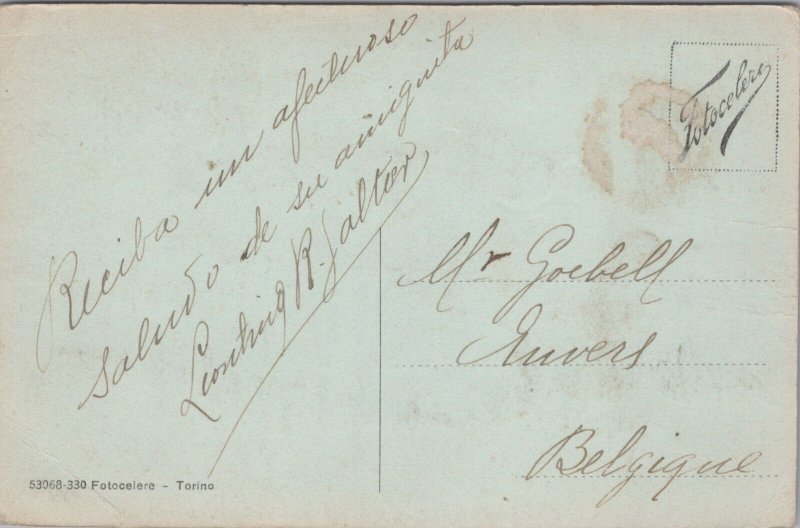 Reciba un afectuoso
saludo de su amiguita
Leontina R. Salter
Fotocelere
Mr Goebell
Anvers
Belgique
53068-330 Fotocelere - Torino